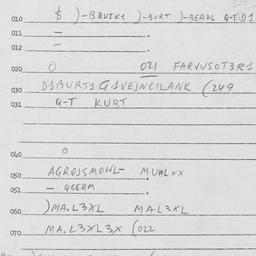 010 $ )-BRUIK1 )-BURT )-BERDL G-T D1
011 —
012 —
020 O 021 FARVUSOT3R1
030 D1BURT1 G1VEJNCILANK (249
031 G-T KURT
040 O
050 AGROJSMOWL- MUHLXX
051 — QGERM
060 )MA.L3XL MAL3XL
070 MA.L3XL3X (022